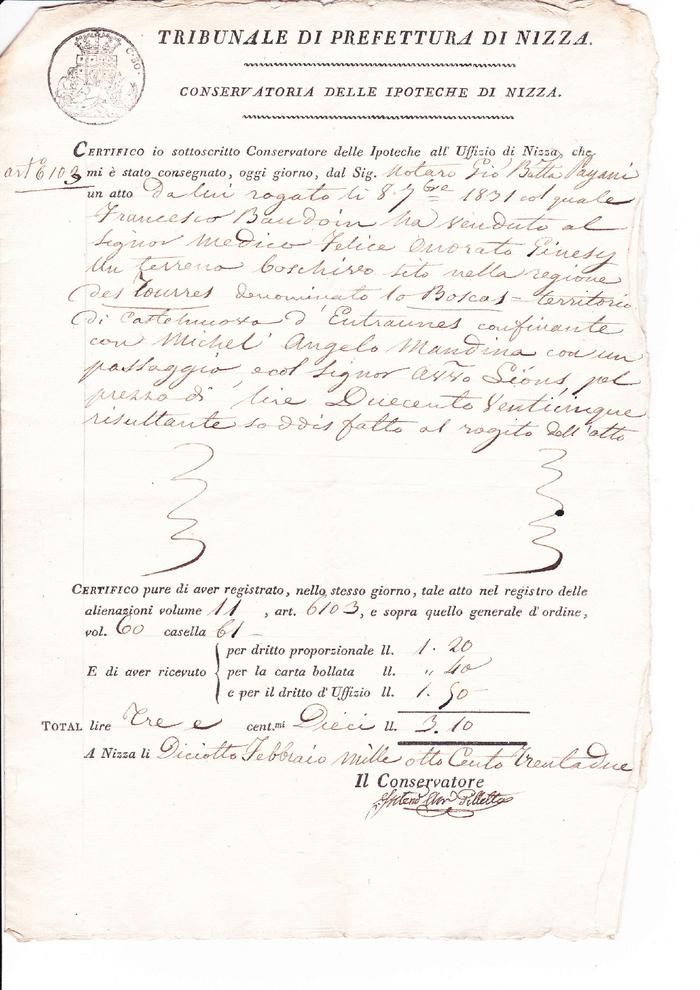 C. 30.
TRIBUNALE DI PREFETTURA DI NIZZA.
CONSERVATORIA DELLE IPOTECHE DI NIZZA.
CERTIFICO io sottoscritto Conservatore delle Ipoteche all' Uffizio di Nizza, che
art 6103
mi è stato consegnato, oggi giorno, dal Sig. Notaro Gio Batta Payani
un atto da lui rogato li 8. 7bre 1831 col quale
Francesco Baudoin ha venduto al
Signor Medico Felice Onorato Ginesy
Un terreno boschivo sito nella regione
des Tourres denominato lo Boscas = territorio
di Castelnuovo d'Entraunes confinante
con Michel' Angelo Mandina con un
passaggio, e col Signor Lions, pel
prezzo di lire Duecento Venticinque
risultante soddisfatto al rogito dell'atto
CERTIFICO pure di aver registrato, nello stesso giorno, tale atto nel registro delle
alienazioni volume 11, art. 6103, e sopra quello generale d'ordine,
vol. 60 casella 61
E di aver ricevuto
per dritto proporzionale ll. 1. 20
per la carta bollata ll. " 40
e per il dritto d'Uffizio ll. 1. 50
TOTAL lire Tre e cent.mi Dieci ll. 3. 10
A Nizza li Diciotto Febbraio mille otto Cento Trentadue
Il Conservatore
Pilletta